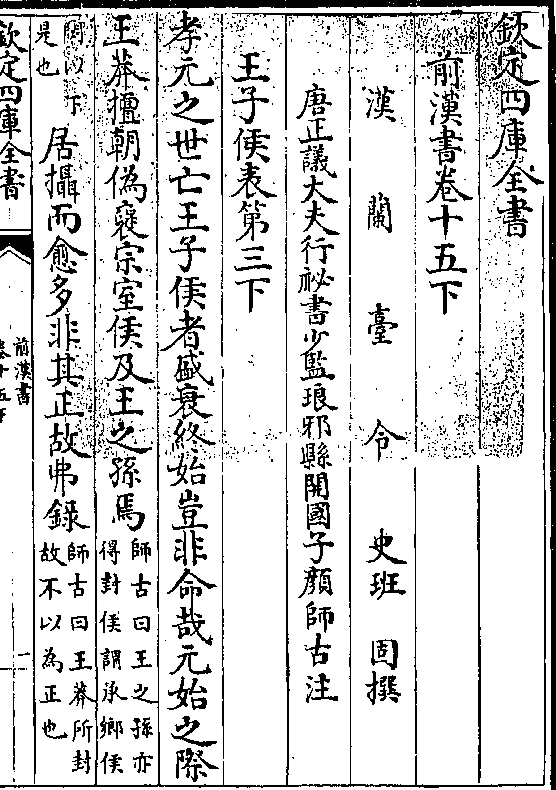 欽定四庫全書
前漢書卷十五下
漢蘭臺令史班固撰
唐正議大夫行祕書少監琅邪縣開國子顏師古注
王子侯表第三下
孝元之世亡王子侯者盛衰終始豈非命哉元始之際
王莽擅朝偽襃宗室侯及王之孫焉師古曰王之孫亦得封侯謂承鄉侯
閎以下是也居攝而愈多非其正故弗錄師古曰王莽所封故不以為正也
欽定四庫全書
前漢書
卷十五下
一